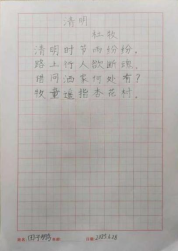 清明
杜牧
清明时节雨纷纷，
路上行人欲断魂，
借问酒家何处有？
牧童遥指杏花村。